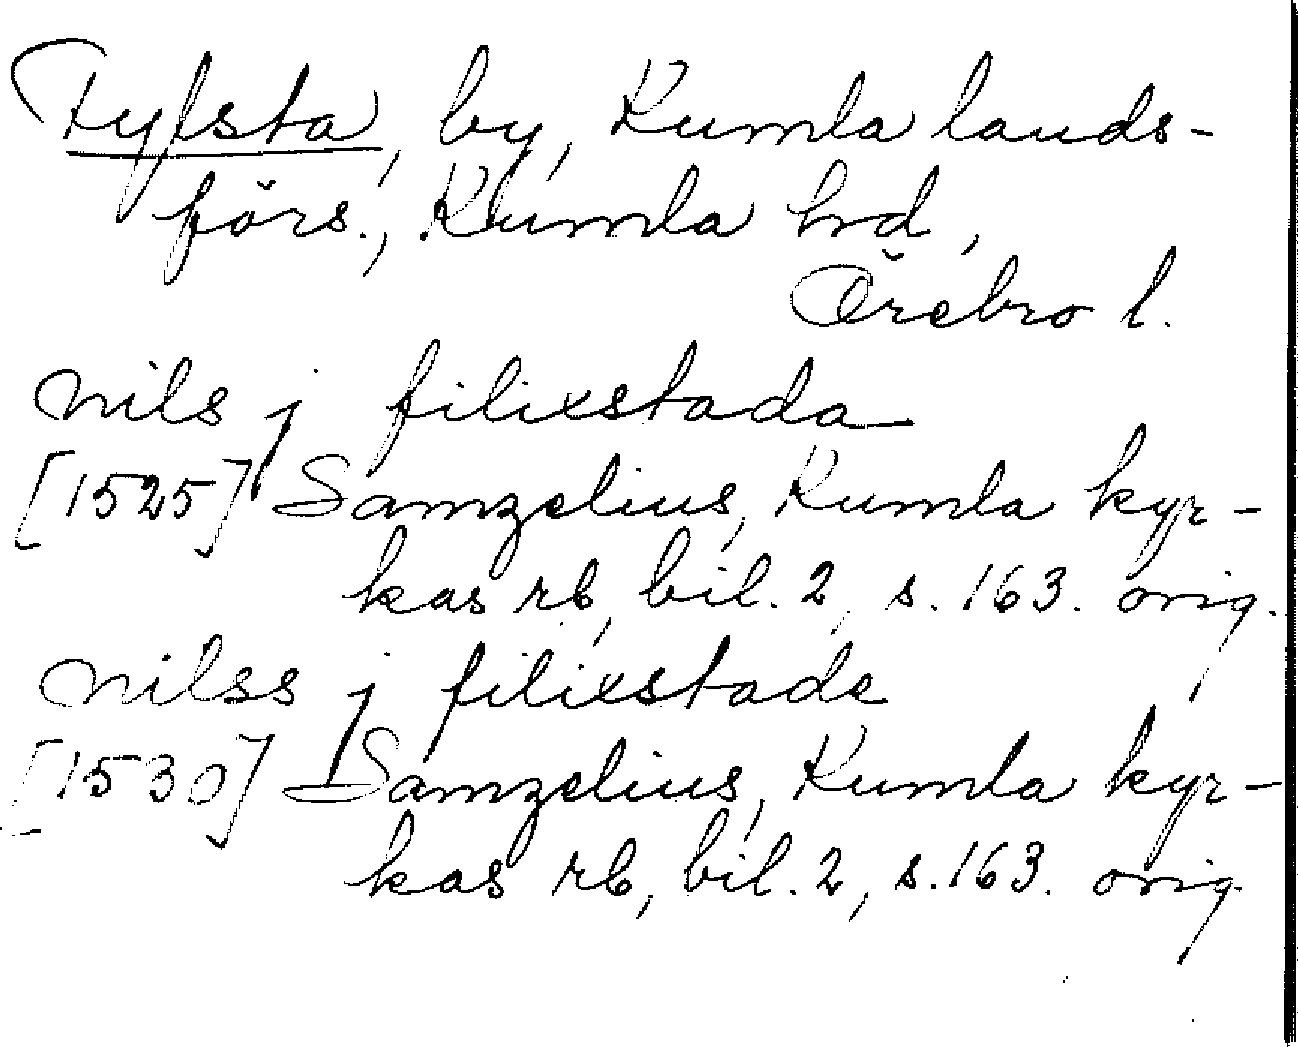 Fylsta, by, Kumla lands-
förs., Kumla hd,
Örebro l.
nils j filixstada
[1525] Samzelius, Kumla kyr-
kas rb, bil. 2, s. 163. orig.
nilss j filixstade
[1530] Samzelius, Kumla kyr-
kas rb, bil. 2, s. 163. orig.